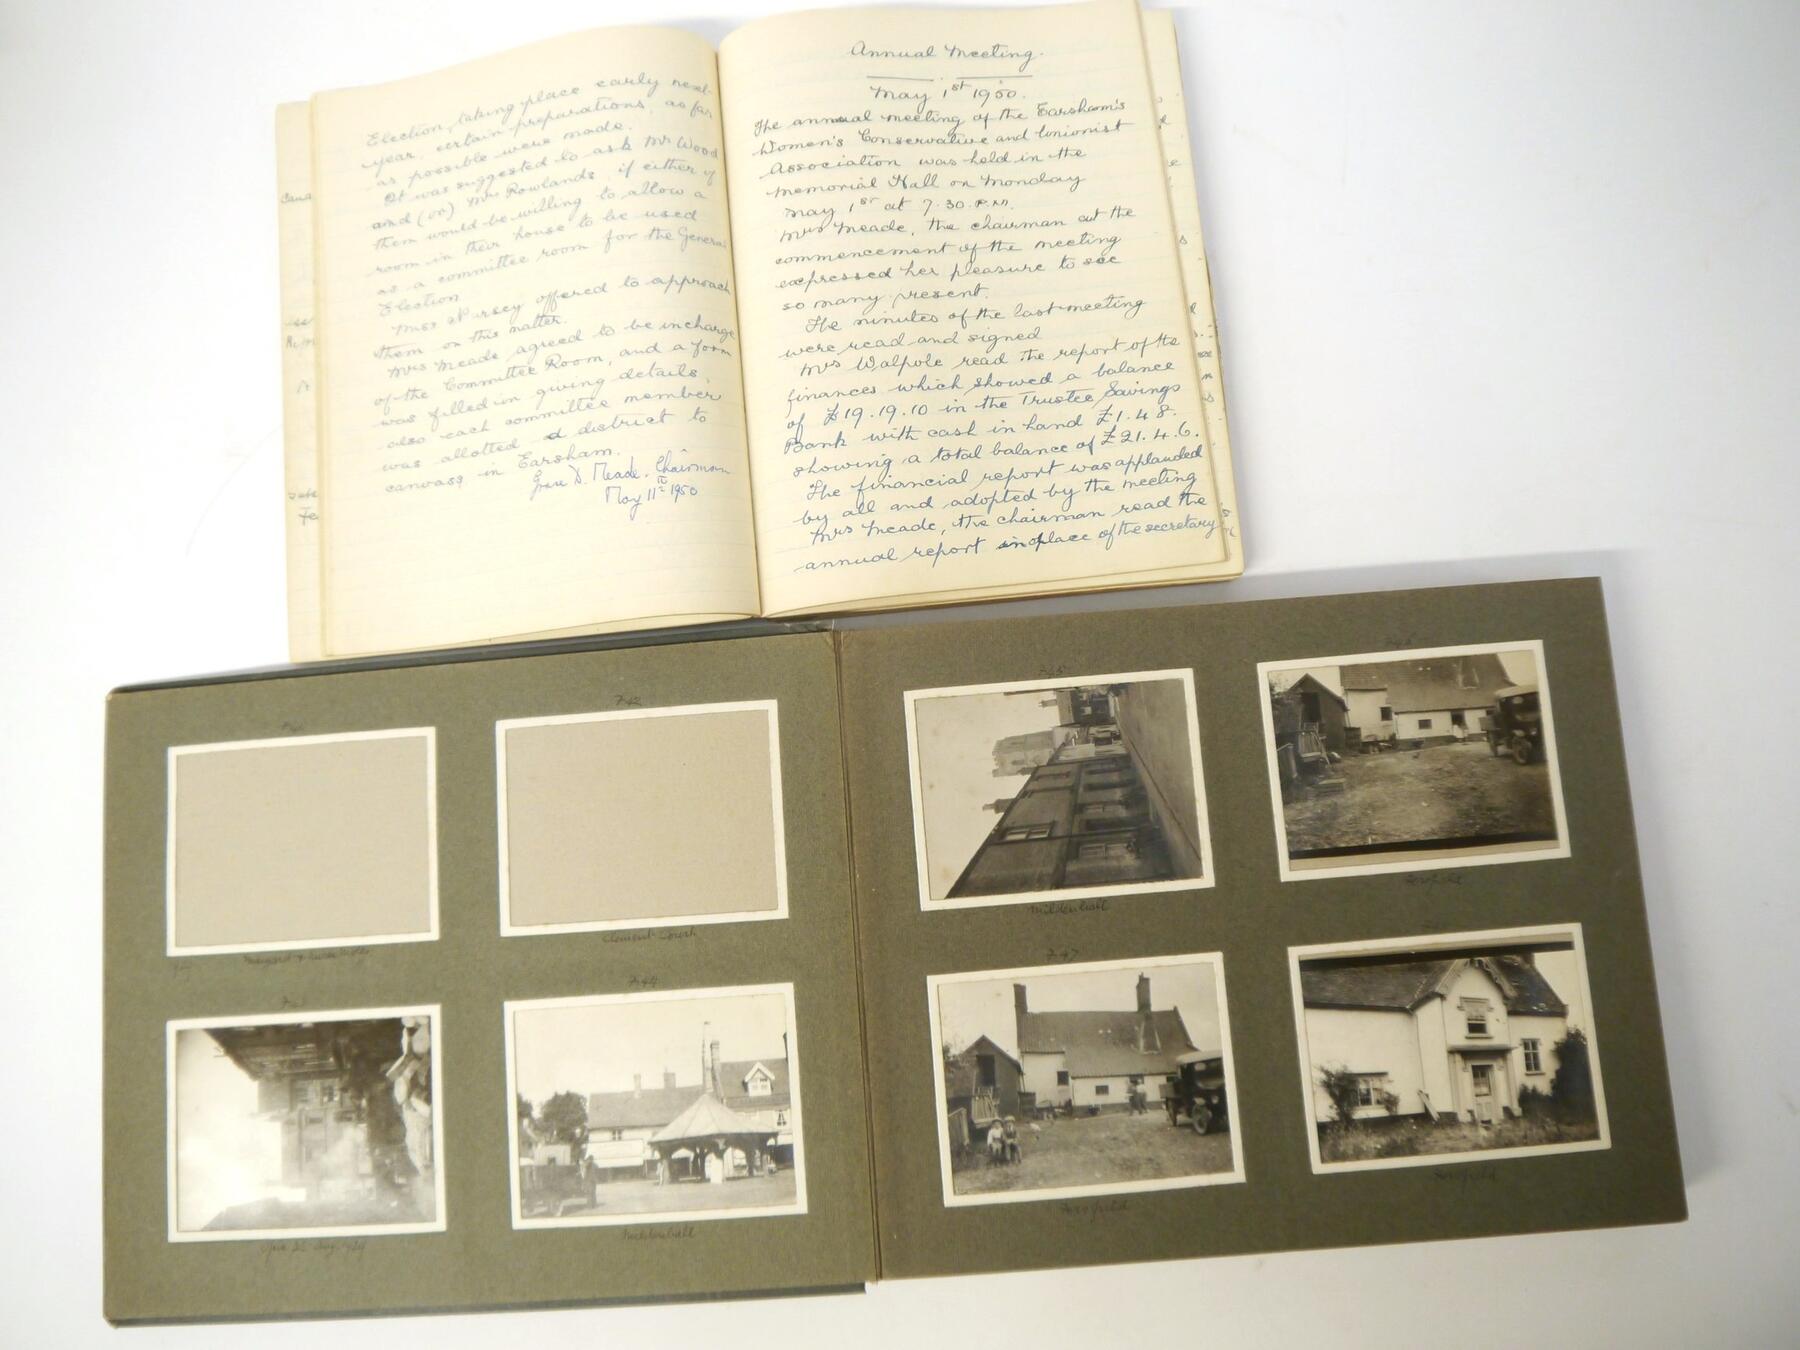 Election, taking place early next
year, certain preparations, as far
as possible were made.
It was suggested to ask Mr Wood
and (or) Mrs Rowlands, if either of
them would be willing to allow a
room in their house to be used
as a committee room for the General
Election
Miss Pursey offered to approach
them on this matter.
Mrs Meade agreed to be in charge
of the Committee Room, and a form
was filled in giving details,
also each committee member
was allotted a district to
canvass in Earsham.
D. Meade. Chairman
May 11th 1950
Annual Meeting.
May 1st 1950.
The annual meeting of the Earsham's
Women's Conservative and Unionist
Association was held in the
Memorial Hall on Monday
May 1st at 7.30. P.M.
Mrs Meade, the chairman at the
commencement of the meeting
expressed her pleasure to see
so many present.
The minutes of the last meeting
were read and signed
Mrs Walpole read the report of the
finances which showed a balance
of £19.19.10 in the Trustee Savings
Bank with cash in hand £1.4.8.
showing a total balance of £21.4.6.
The financial report was applauded
by all and adopted by the meeting
Mrs Meade, the chairman read the
annual report in place of the secretary
742
Clement
744
Mildenhall
745
Mildenhall
747
Fersfield
Fersfield
Fersfield